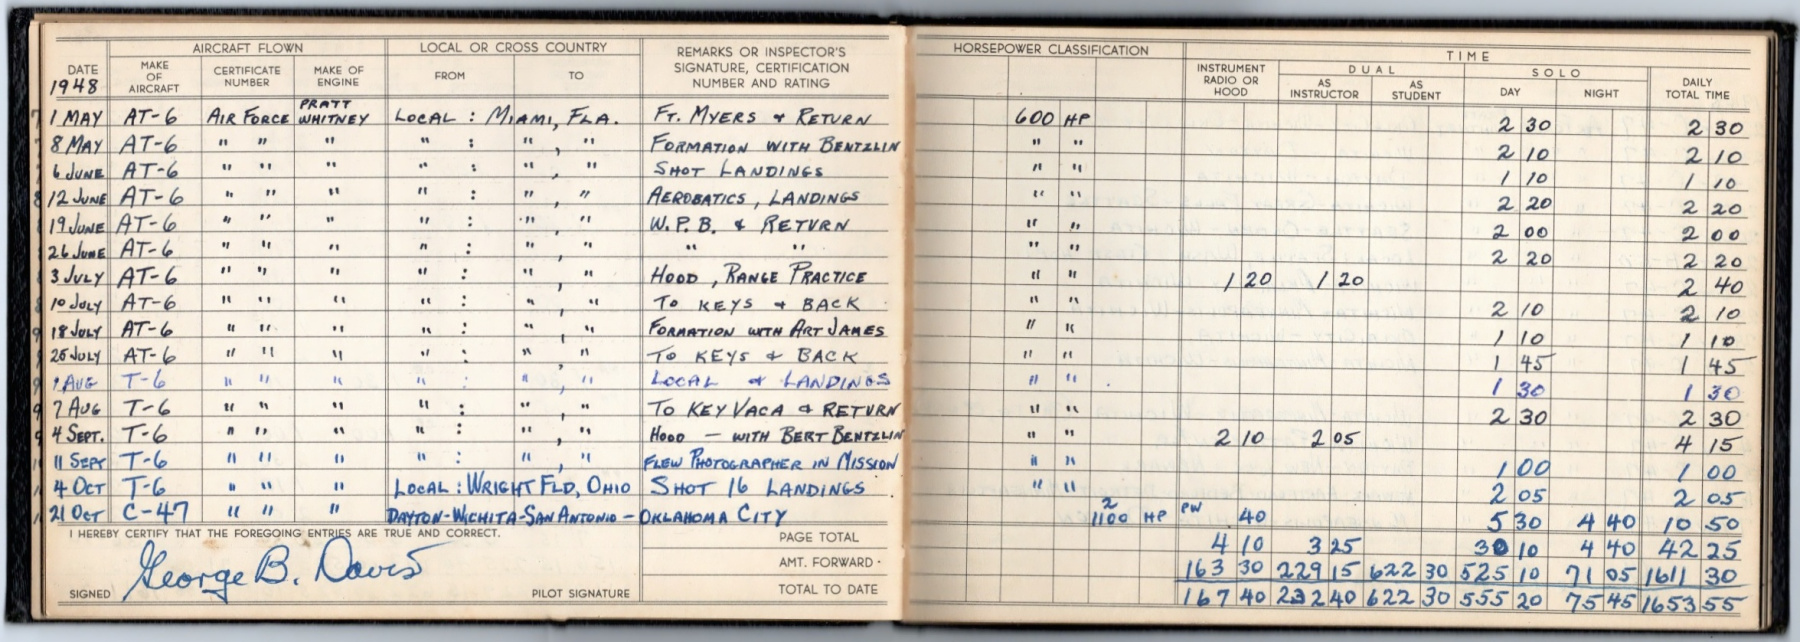 AIRCRAFT FLOWN LOCAL OR CROSS COUNTRY REMARKS OR INSPECTOR'S SIGNATURE, CERTIFICATION NUMBER AND RATING HORSEPOWER CLASSIFICATION TIME
DATE MAKE OF AIRCRAFT CERTIFICATE NUMBER MAKE OF ENGINE FROM TO INSTRUMENT RADIO OR HOOD DUAL SOLO DAILY TOTAL TIME
1948 AS INSTRUCTOR AS STUDENT DAY NIGHT
1 MAY AT-6 AIR FORCE PRATT WHITNEY LOCAL : MIAMI, FLA. FT. MYERS & RETURN 600 HP 2 30 2 30
8 MAY AT-6 " " " " : " , " FORMATION WITH BENTZLIN " " 2 10 2 10
6 JUNE AT-6 " " " " : " , " SHOT LANDINGS " " 1 10 1 10
12 JUNE AT-6 " " " " : " , " AEROBATICS, LANDINGS " " 2 20 2 20
19 JUNE AT-6 " " " " : " , " W.P.B. & RETURN " " 2 00 2 00
26 JUNE AT-6 " " " " : " , " " " " " 2 20 2 20
3 JULY AT-6 " " " " : " , " HOOD, RANGE PRACTICE " " 1 20 1 20 2 40
10 JULY AT-6 " " " " : " , " TO KEYS & BACK " " 2 10 2 10
18 JULY AT-6 " " " " : " , " FORMATION WITH ART JAMES " " 1 10 1 10
25 JULY AT-6 " " " " : " , " TO KEYS & BACK " " 1 45 1 45
1 AUG T-6 " " " " : " , " LOCAL & LANDINGS " " 1 30 1 30
7 AUG T-6 " " " " : " , " TO KEY VACA & RETURN " " 2 30 2 30
4 SEPT. T-6 " " " " : " , " HOOD — WITH BERT BENTZLIN " " 2 10 2 05 4 15
11 SEPT T-6 " " " " : " , " FLEW PHOTOGRAPHER IN MISSION " " 1 00 1 00
4 OCT T-6 " " " LOCAL : WRIGHT FLD, OHIO SHOT 16 LANDINGS " " 2 05 2 05
21 OCT C-47 " " " DAYTON-WICHITA-SAN ANTONIO-OKLAHOMA CITY 2 1100 HP PW 40 5 30 4 40 10 50
I HEREBY CERTIFY THAT THE FOREGOING ENTRIES ARE TRUE AND CORRECT. PAGE TOTAL 4 10 3 25 30 10 4 40 42 25
George B. Davis AMT. FORWARD 163 30 229 15 622 30 525 10 71 05 1611 30
SIGNED PILOT SIGNATURE TOTAL TO DATE 167 40 232 40 622 30 555 20 75 45 1653 55